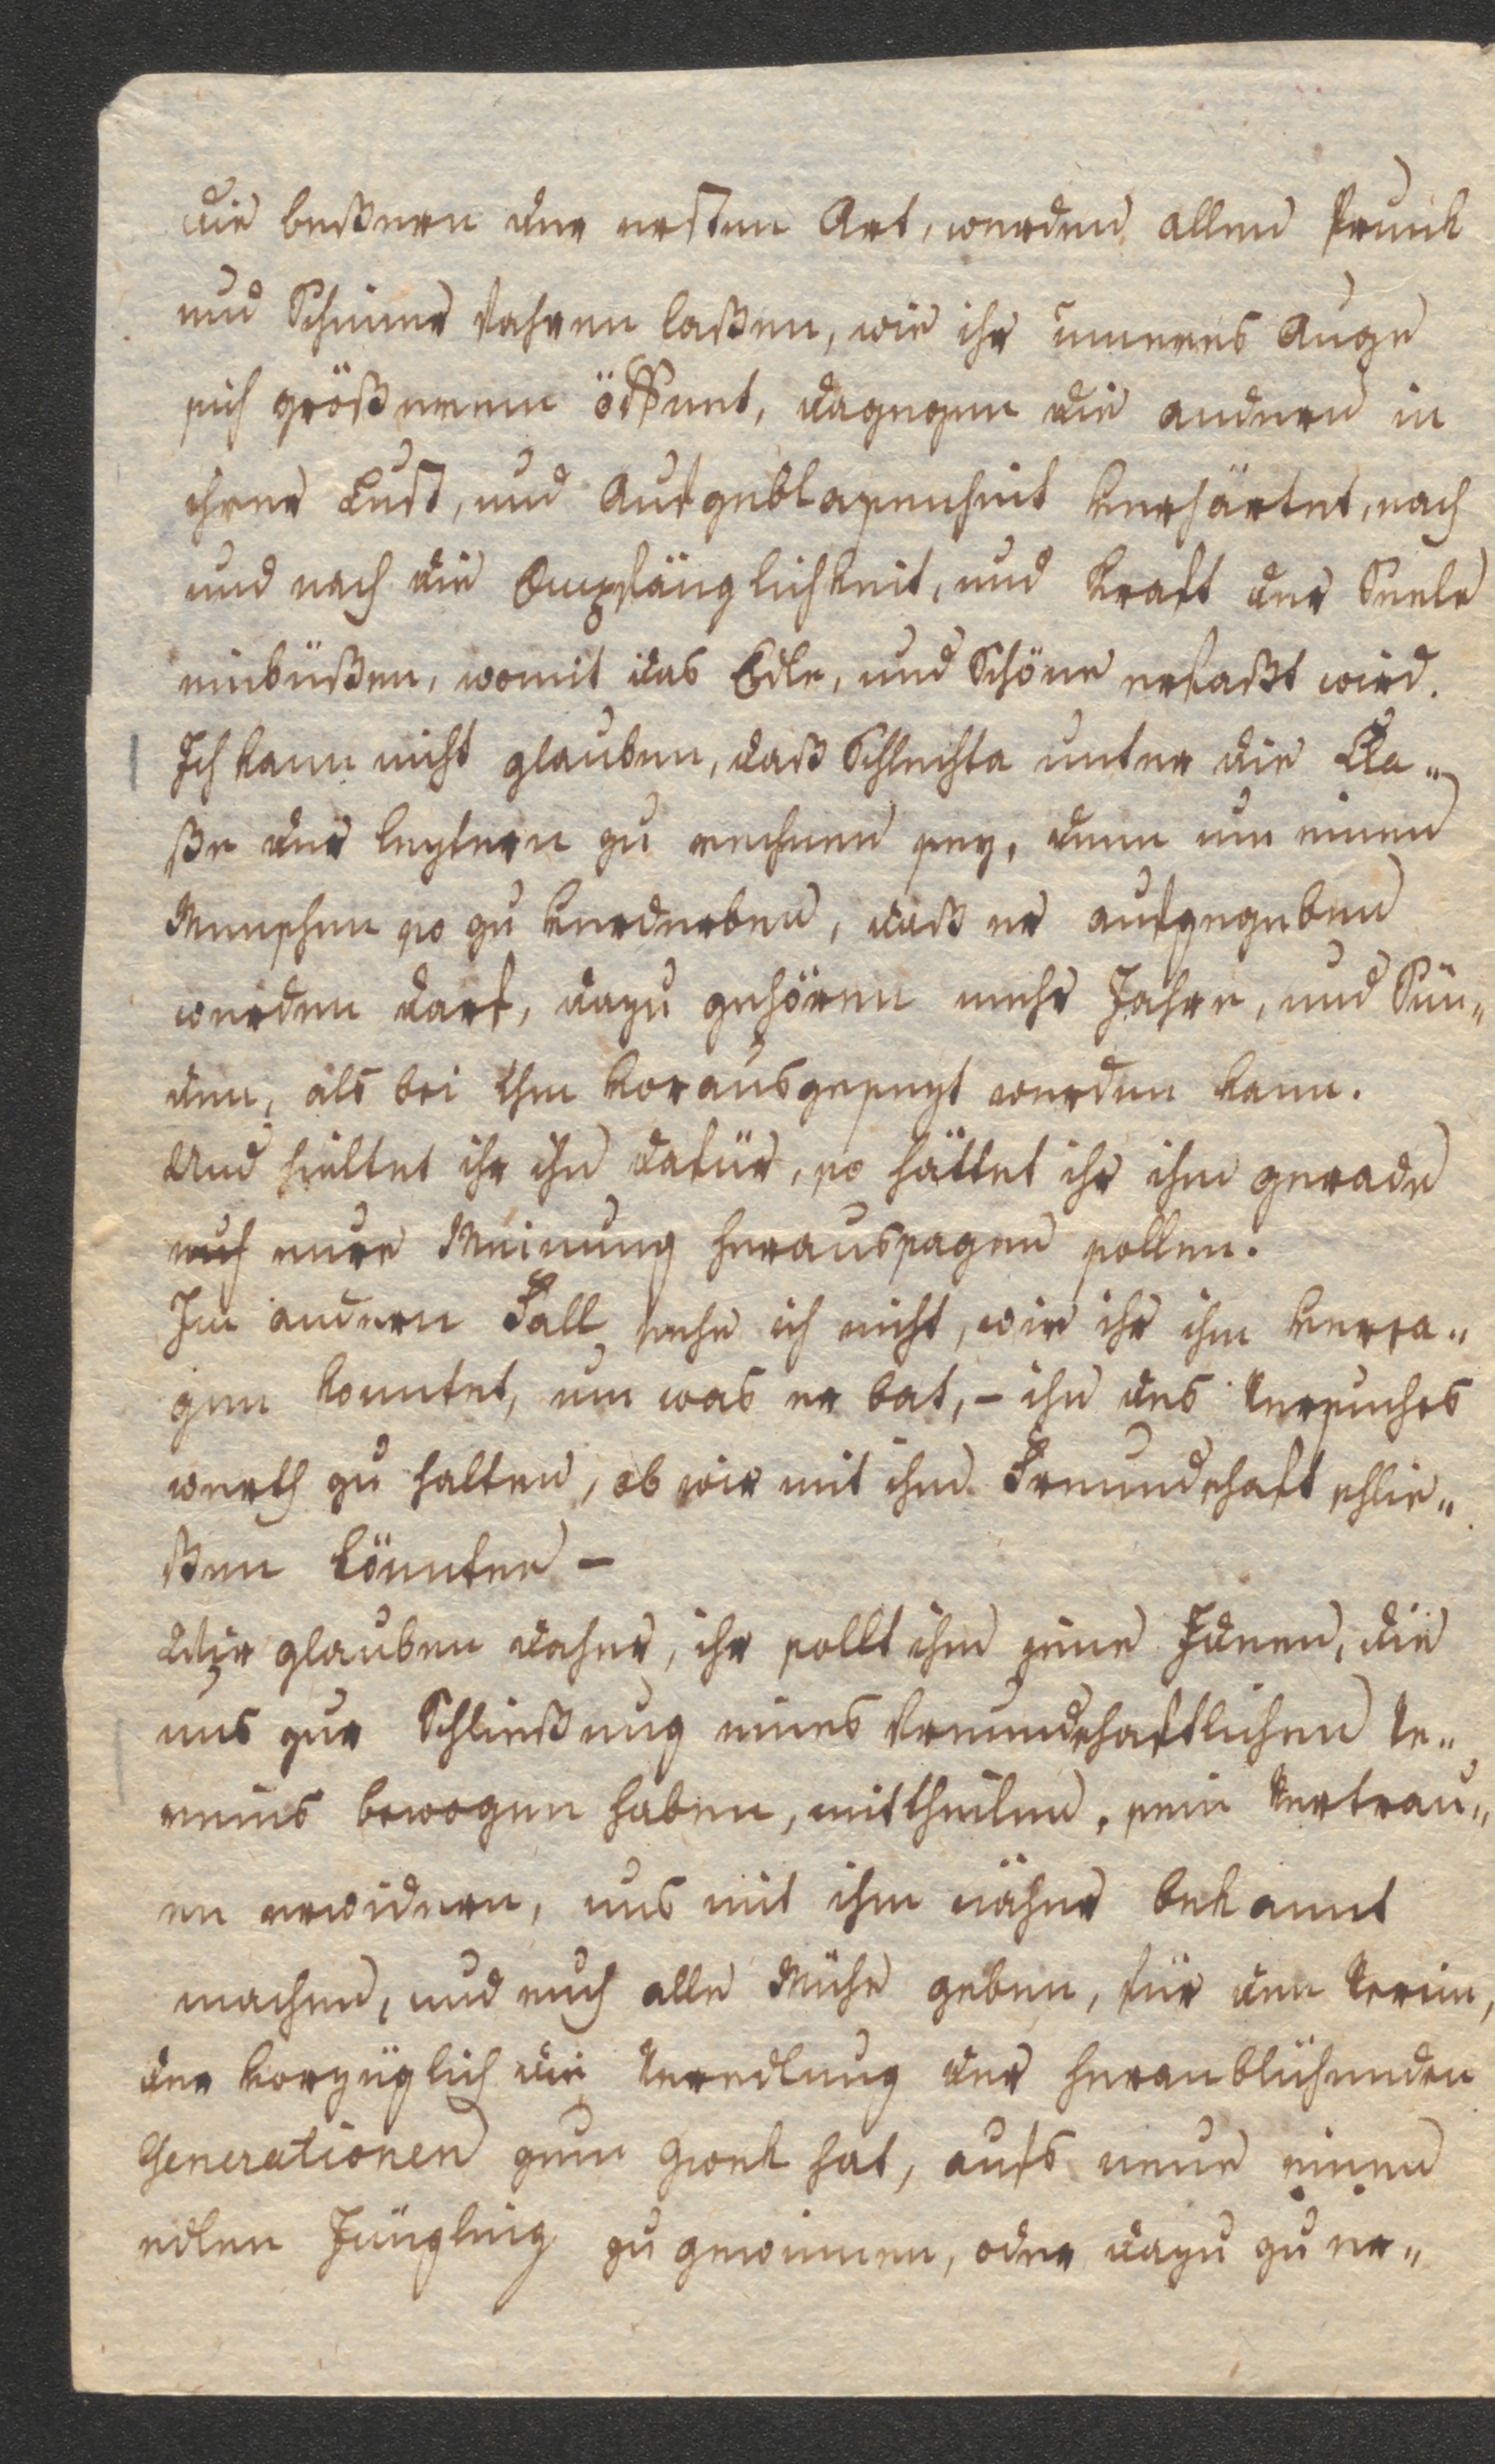 die beßern der ersten Art, werden allen Prunk
und Schimer fahren laßen, wie ihr inneres Auge
sich größeren öffnet, dagegen die andern in
ihrer Lust, und Aufgeblasenheit verhärtet, nach
und nach die Empfänglichkeit, und Kraft der Seele
einbüßen, womit das Edle, und Schöne erfaßt wird.
Ich kann nicht glauben, daß Schlechta unter die Cla„
ße der leztern zu rechnen sey, denn um einen
Menschen so zu verderben, daß er aufgegeben
werden darf, dazu gehören mehr Jahre, und Sün„
den, als bei ihm vorausgesezt werden kann.
Und hieltet ihr ihn dafür, so hättet ihr ihm gerade
euch eure Meinung heraussagen sollen.
Im andern Fall sehe ich nicht, wie ihr ihm versa„
gen konntet, um was er bat, – ihn des Versuches
werth zu halten, ob wir mit ihm Freundschaft schlie„
ßen könnten –
Wir glauben daher, ihr sollt ihm jene Ideen, die
uns zur Schließung eines freundschaftlichen Ve„
reins bewogen haben, mittheilen, sein Vertrau„
en erwidern, uns mit ihm näher bekannt
machen, und euch alle Mühe geben, für den Verein,
der vorzüglich die Veredlung der heranblühenden
Generationen zum Zwek hat, aufs neue einen
edlen Jüngling zu gewinnen, oder dazu zu er„